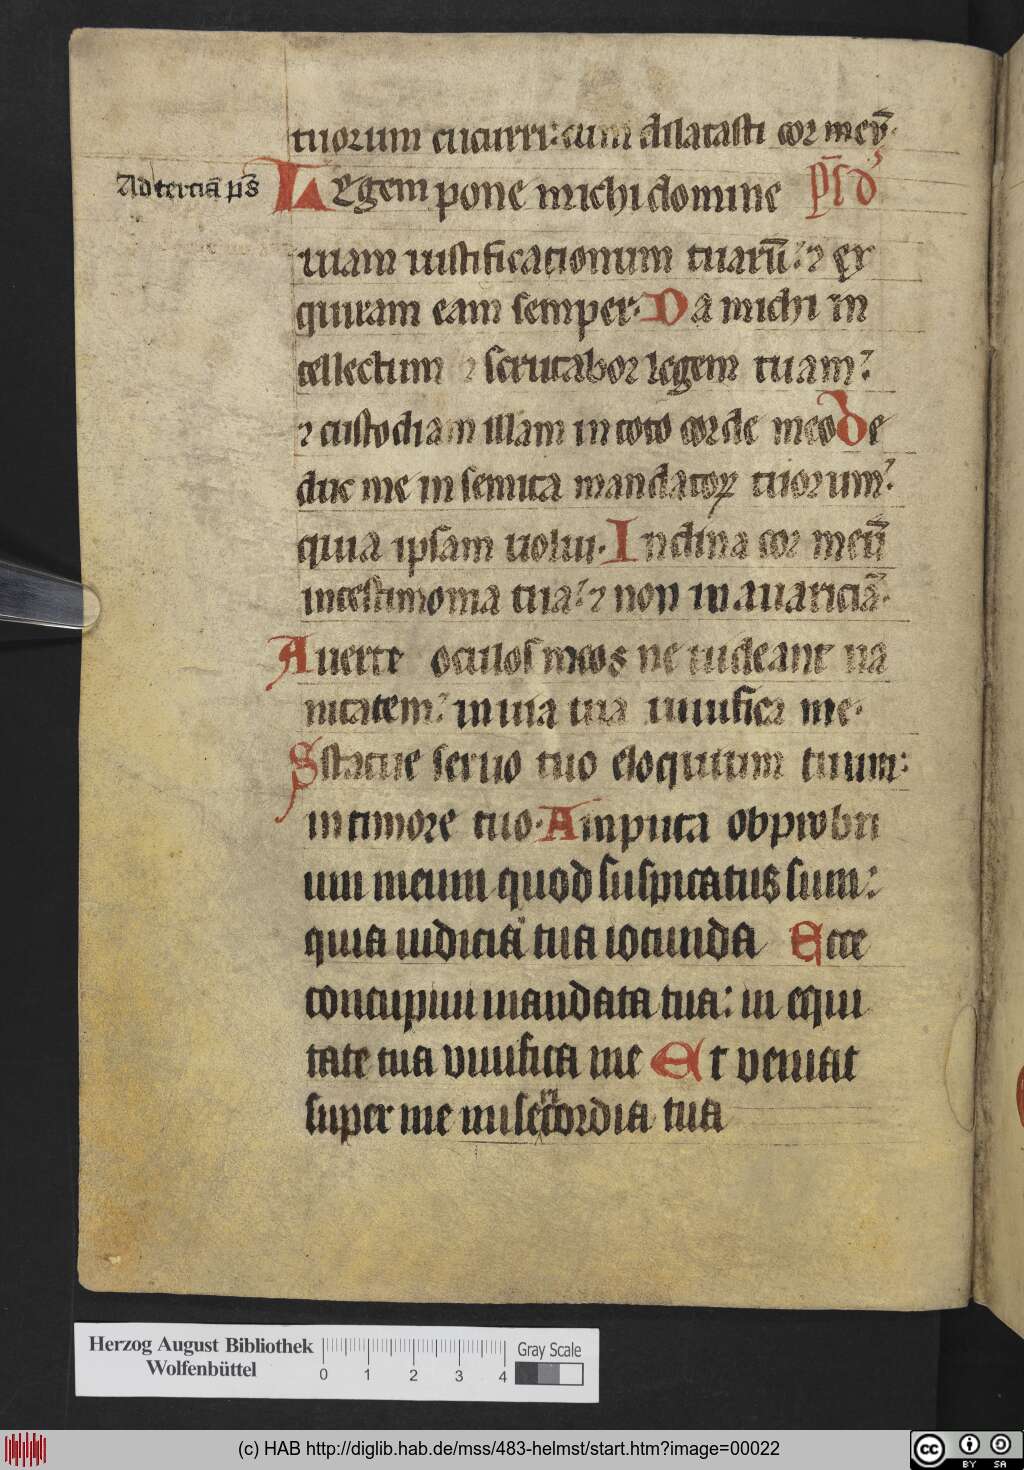 tuorum cucurri: cum dilatasti cor meū·
Ad terciā ps̄
Legem pone michi domine p̄s d̛
uiam iustificationum tuarū: ⁊ ex
quiram eam semper· Da michi in
tellectum ⁊ scrutabor legem tuam:
⁊ custodiam illam in toto corde meo De
duc me in semita mandatoꝝ tuorum:
quia ipsam uolui· Inclina cor meū
in testimonia tua: ⁊ non in auariciā·
Auerte oculos meos ne uideant ua
nitatem: in uia tua uiuifica me·
Sstatue seruo tuo eloquium tuum:
in timore tuo· Amputa obprobri
um meum quod suspicatus sum:
quia iudicia tua iocunda Ecce
concupiui mandata tua: in equi
tate tua viuifica me Et veniat
super me misericordia tua
Herzog August Bibliothek
Wolfenbüttel
0 1 2 3 4
Gray Scale
(c) HAB http://diglib.hab.de/mss/483-helmst/start.htm?image=00022
cc BY SA